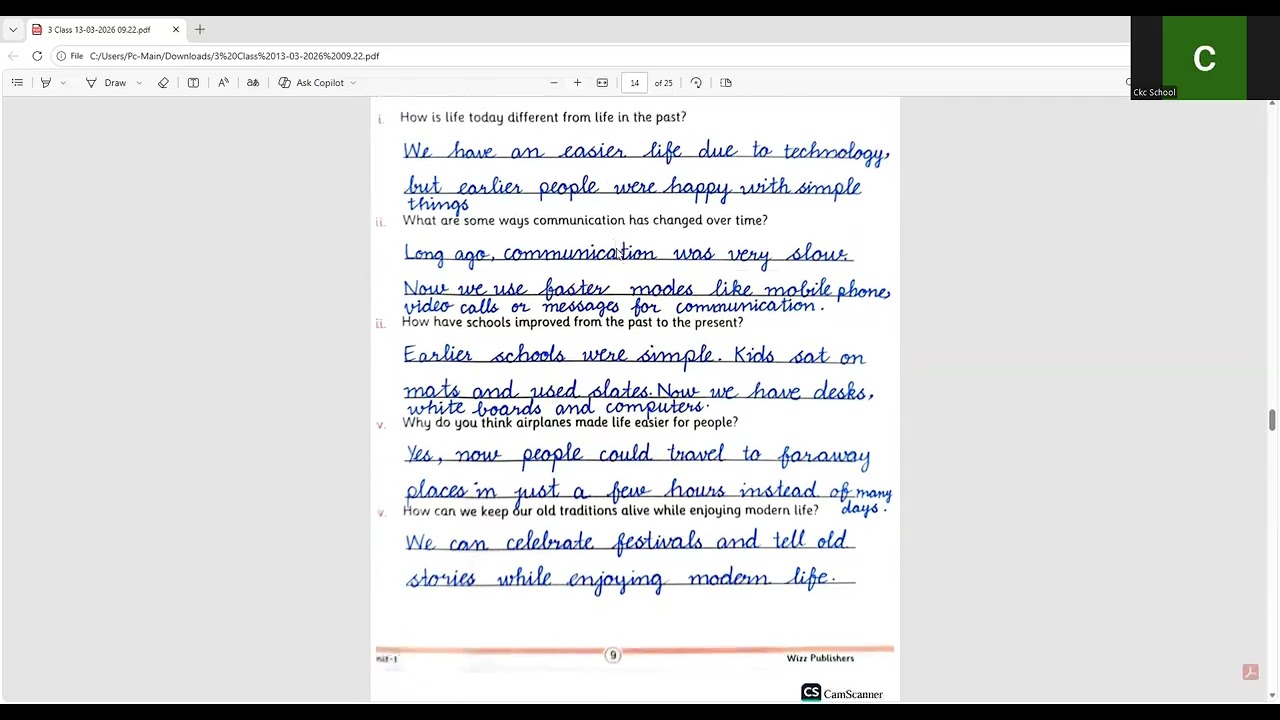 3 Class 13-03-2026 09.22.pdf
File C:/Users/Pc-Main/Downloads/3%20Class%2013-03-2026%2009.22.pdf
Draw Ask Copilot 14 of 25
C
Ckc School
i. How is life today different from life in the past?
We have an easier life due to technology,
but earlier people were happy with simple
things
ii. What are some ways communication has changed over time?
Long ago, communication was very slow.
Now we use faster modes like mobile phone,
video calls or messages for communication.
ii. How have schools improved from the past to the present?
Earlier schools were simple. Kids sat on
mats and used slates. Now we have desks,
white boards and computers.
v. Why do you think airplanes made life easier for people?
Yes, now people could travel to faraway
places in just a few hours instead of many
days.
v. How can we keep our old traditions alive while enjoying modern life?
We can celebrate festivals and tell old
stories while enjoying modern life.
nit-1 9 Wizz Publishers
CS CamScanner